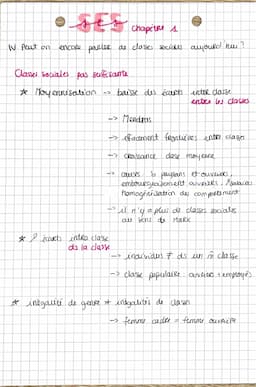 SES Chapitre 1
Peut on encore parler de classes sociales aujourd'hui ?
Classes sociales pas suffisante
* Moyennisation -> baisse des écarts inter classe
entre les classes
-> Mendras
-> effacement frontières inter classes
-> croissance classe moyenne
-> paysans et ouvriers,
embourgeoisement ouvriers,
homogénéisation des comportement
-> il n'y a plus de classes sociales
au sens de Marx
* écarts intra classe
ds la classe
-> individus ≠ ds un m̂ classe
-> classe populaire ouvriers + employés
* inégalité de genre + inégalités de classes
-> femme cadre = femme ouvrière